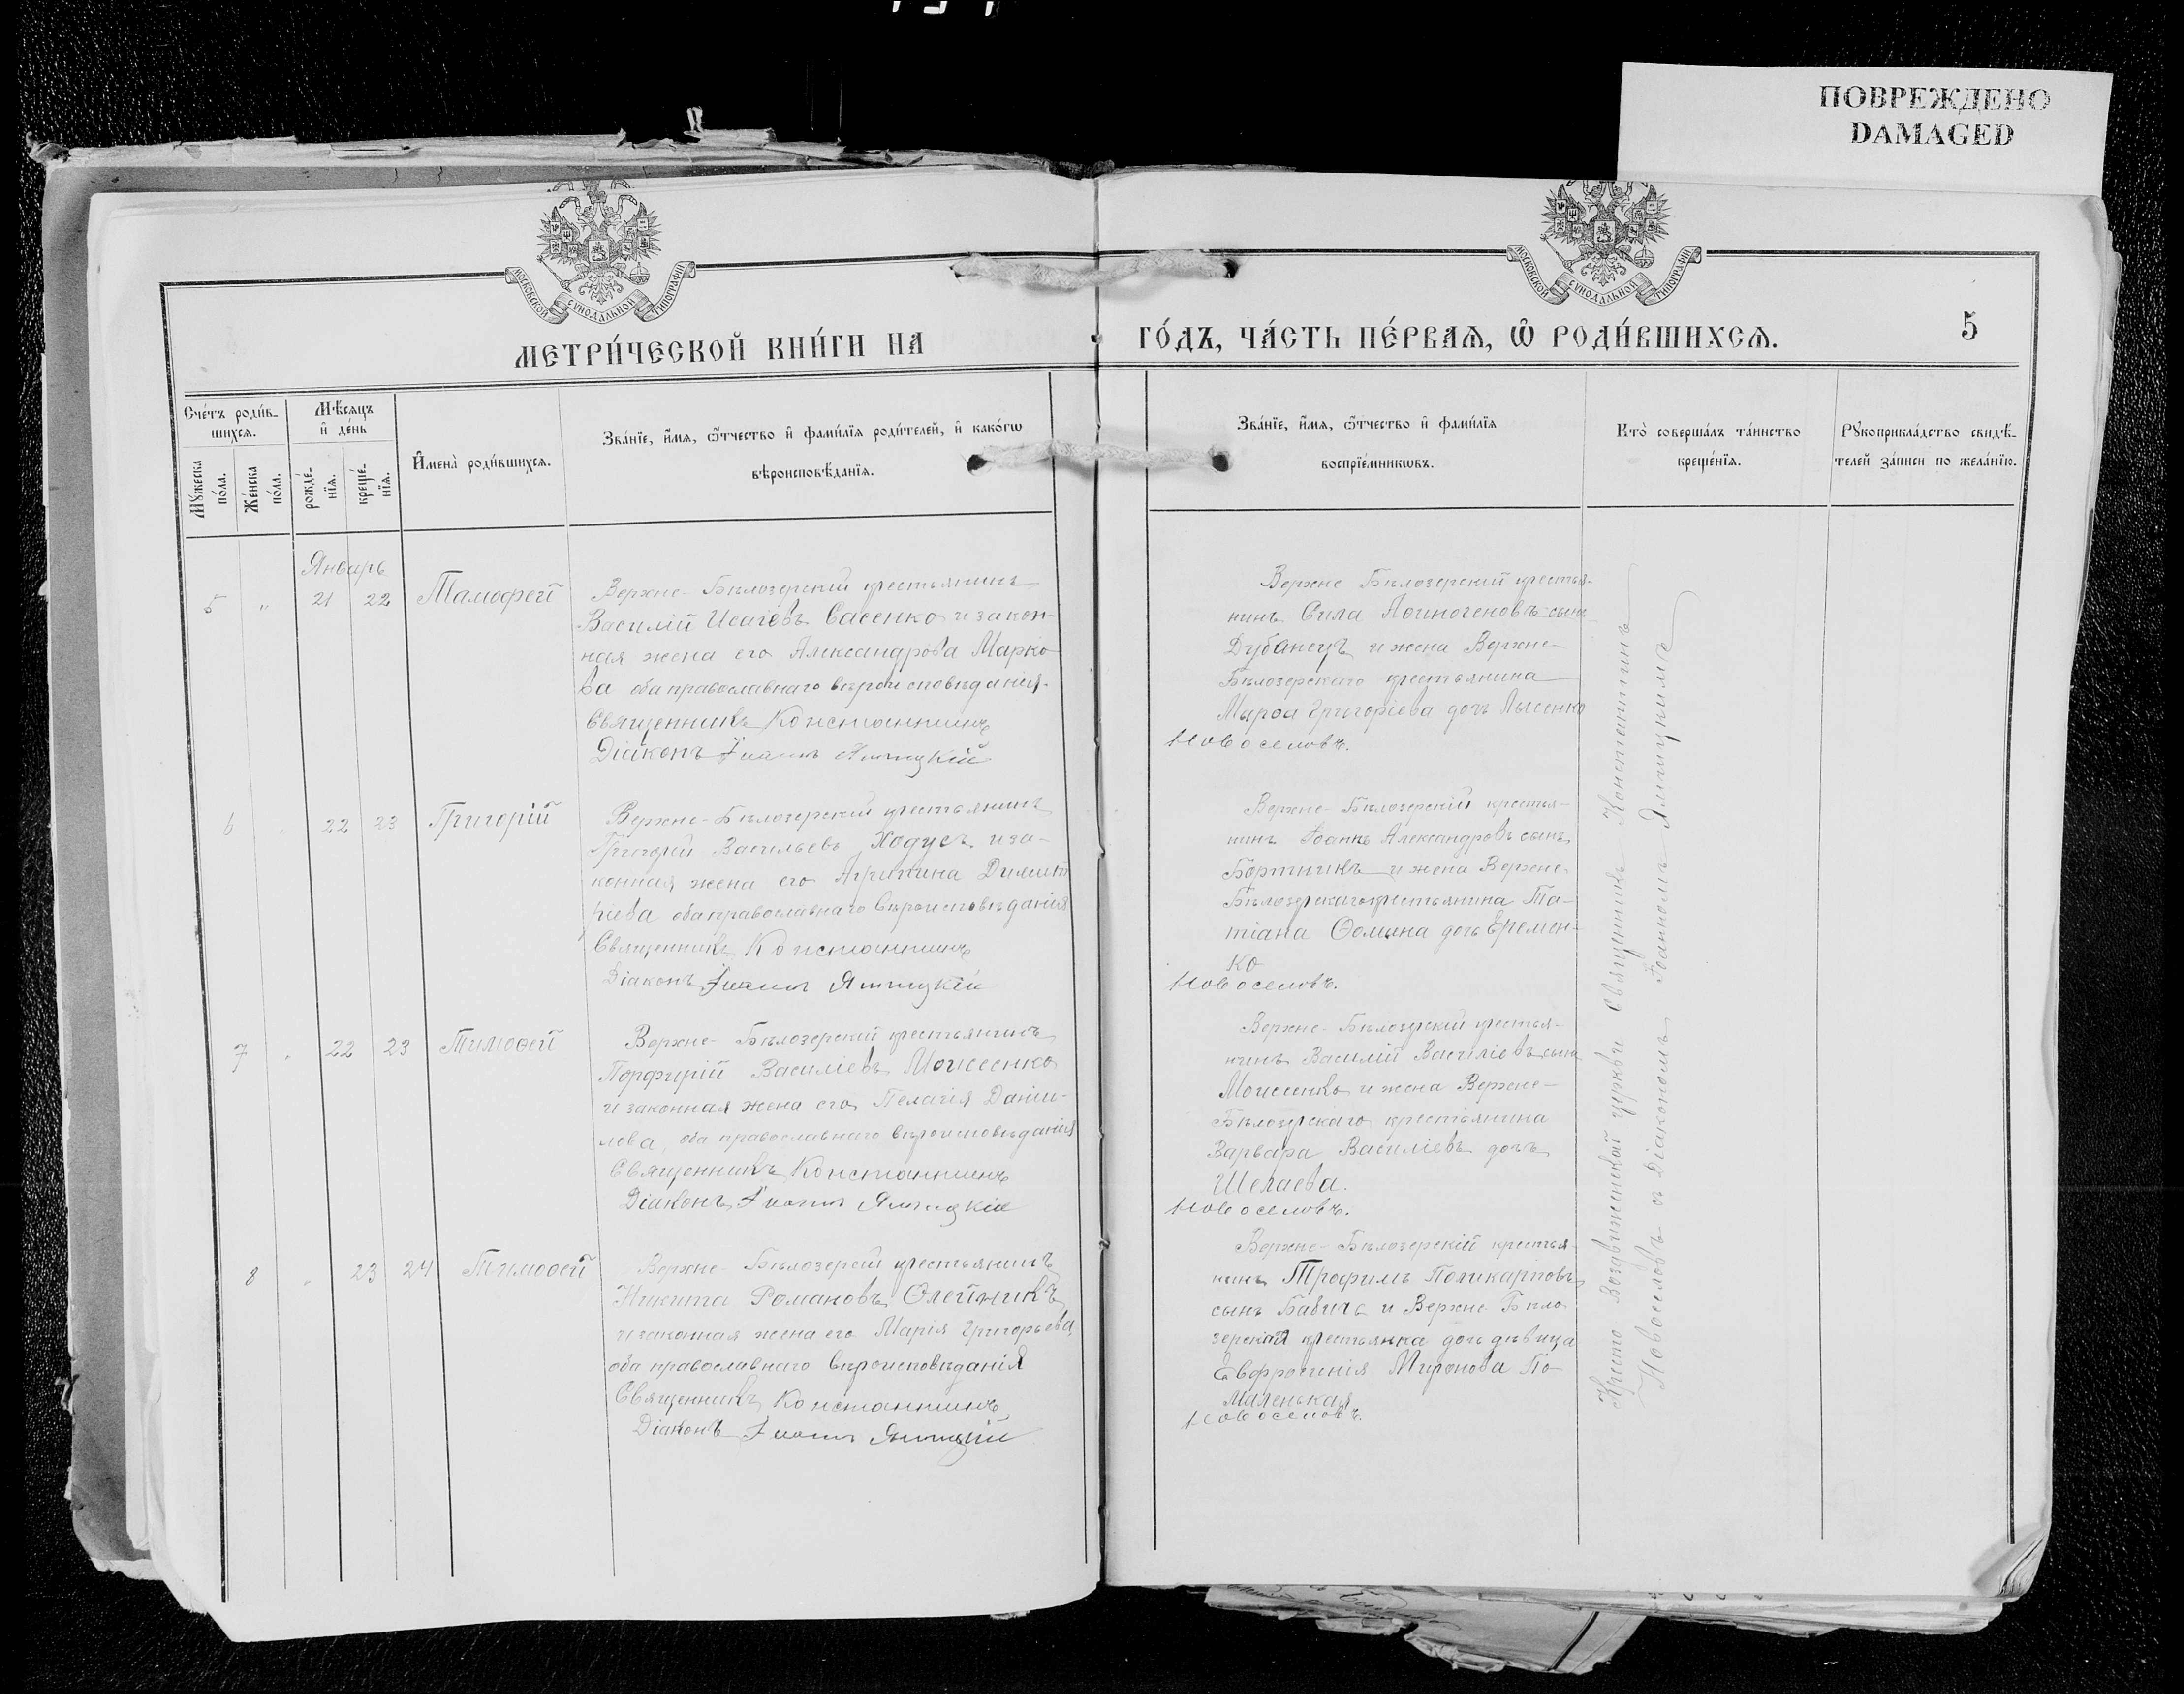 ПОВРЕЖДЕНО
DAMAGED
МОСКОВСКОЙ СУНОДАЛЬНОЙ ТИПОГРАФІИ
МОСКОВСКОЙ СУНОДАЛЬНОЙ ТИПОГРАФІИ
МЕТРИ́ЧЕСКОЙ КНИ́ГИ НА
ГО́ДЪ, ЧА́СТЬ ПЕ́РВАѦ, Ѡ РОДИ́ВШИХСѦ.
5
Сче́тъ роди́в-
шихсѧ.
Мꙋжеска
по́ла.
Же́нска
по́ла.
Мѣ́сѧцъ
и де́нь
рожде́-
нїѧ.
креще́-
нїѧ.
Имена̀ роди́вшихсѧ.
Зва́нїе, и́мѧ, ѻ́тчество и фами́лїѧ роди́телей, и како́гѡ
вѣроисповѣ́данїѧ.
Зва́нїе, и́мѧ, ѻ́тчество и фами́лїѧ
воспрїе́мникѡвъ.
Кто̀ соверша́лъ та́инство
креще́нїѧ.
Рꙋкоприкла́дство свидѣ́-
телей за́писи по жела́нїю.
Январь
5 " 21 22 Тамофей
Верхне-Бѣлозерскій крестьянинъ
Василій Исаіевъ Сасенко и закон-
ная жена его Александрова Марко
ва оба православнаго вѣроисповѣданія.
Священникъ Константинъ
Діаконъ Іоаннъ Ямпицкій
Верхне Бѣлозерскій крестья-
нинъ Сила Аѳиногеновъ сынъ
Дубанецъ и жена Верхне-
Бѣлозерскаго крестьянина
Марѳа Григоріева дочь Лысенко
Новоселовъ.
6 " 22 23 Григорій
Верхне-Бѣлозерскій крестьянинъ
Григорій Васильевъ Ходусъ и за-
конная жена его Агрипина Димит
ріева оба православнаго вѣроисповѣданія
Священникъ Константинъ
Діаконъ Іоаннъ Ямпицкій
Верхне-Бѣлозерскій крестья-
нинъ Іоаннъ Александровъ сынъ
Бортникъ и жена Верхне-
Бѣлозерскаго крестьянина Та-
тіана Ѳомина дочь Еремен-
ко
Новоселовъ.
7 " 22 23 Тимоѳей
Верхне-Бѣлозерскій крестьянинъ
Порфирій Василіевъ Моисеенко
и законная жена его Пелагія Даніи-
лова, оба православнаго вѣроисповѣданія
Священникъ Константинъ
Діаконъ Іоаннъ Ямпицкій
Верхне-Бѣлозерскій крестья-
нинъ Василій Василіевъ сынъ
Моисеенко и жена Верхне-
Бѣлозерскаго крестьянина
Варвара Василіевъ дочь
Шелаева.
Новоселовъ.
8 " 23 24 Тимоѳей
Верхне-Бѣлозерскій крестьянинъ
Никита Романовъ Олейникъ
и законная жена его Марія Григорьева,
оба православнаго вѣроисповѣданія
Священникъ Константинъ
Діаконъ Іоаннъ Ямпицкій
Верхне-Бѣлозерскій крестья
нинъ Трофимъ Поликарповъ
сынъ Бабичъ и Верхне Бѣло
зерская крестьянка дочь дѣвица
Евфросинія Миронова По
Маленькая
Новоселовъ.
Кресто Воздвиженской церкви Священникъ Константинъ
Новоселовъ съ Діакономъ Іоанномъ Ямпицкимъ